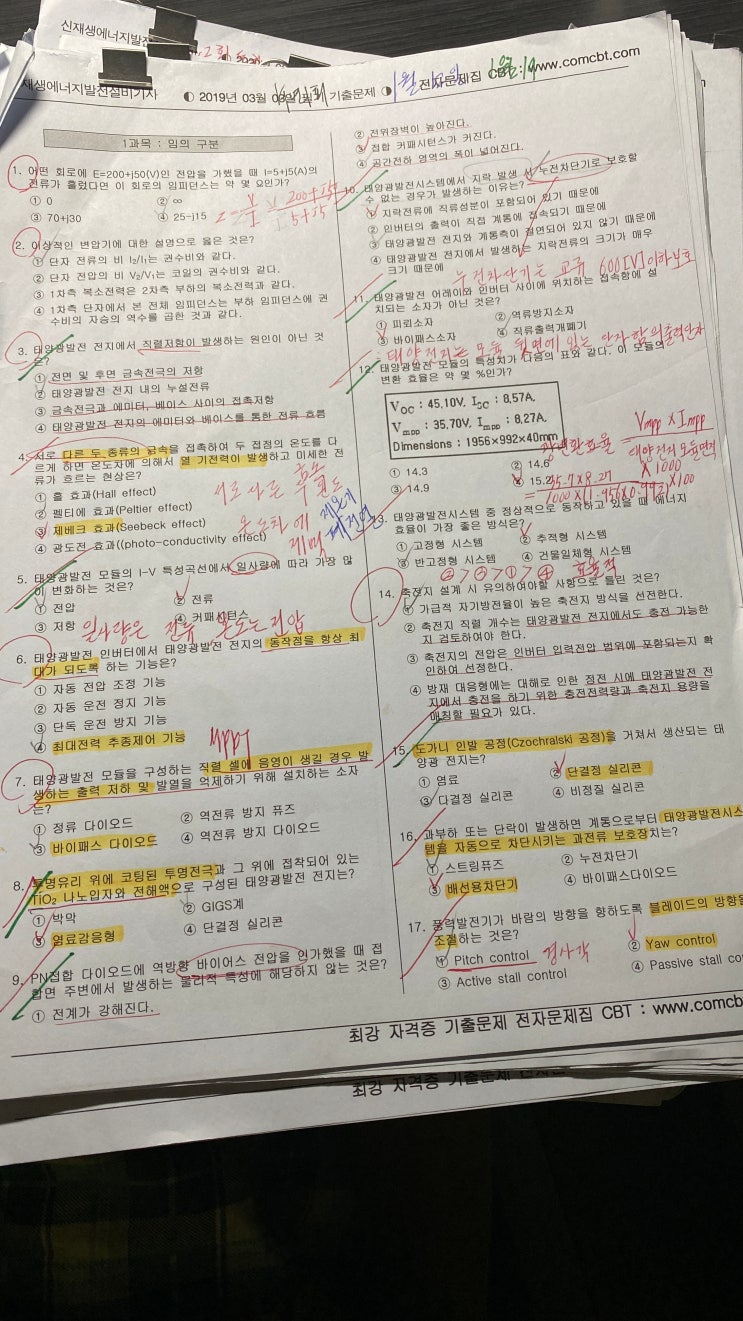 신재생에너지발전
재생에너지발전설비기사 ◐ 2019년 03월 기출문제 ◑ 전자문제집 CBT : www.comcbt.com
1과목 : 임의 구분
1. 어떤 회로에 E=200+j50(V)인 전압을 가했을 때 I=5+j5(A)의
전류가 흘렀다면 이 회로의 임피던스는 약 몇 Ω인가?
① 0 ② ∞
③ 70+j30 ④ 25-j15
2. 이상적인 변압기에 대한 설명으로 옳은 것은?
① 단자 전류의 비 I₂/I₁는 권수비와 같다.
② 단자 전압의 비 V₂/V₁는 코일의 권수비와 같다.
③ 1차측 복소전력은 2차측 부하의 복소전력과 같다.
④ 1차측 단자에서 본 전체 임피던스는 부하 임피던스에 권
수비의 자승의 역수를 곱한 것과 같다.
3. 태양광발전 전지에서 직렬저항이 발생하는 원인이 아닌 것
은?
① 전면 및 후면 금속전극의 저항
② 태양광발전 전지 내의 누설전류
③ 금속전극과 에미터, 베이스 사이의 접촉저항
④ 태양광발전 전지의 에미터와 베이스를 통한 전류 흐름
4. 서로 다른 두 종류의 금속을 접촉하여 두 접점의 온도를 다
르게 하면 온도차에 의해서 열 기전력이 발생하고 미세한 전
류가 흐르는 현상은?
① 홀 효과(Hall effect)
② 펠티에 효과(Peltier effect)
③ 제베크 효과(Seebeck effect)
④ 광도전 효과((photo-conductivity effect)
5. 태양광발전 모듈의 I-V 특성곡선에서 일사량에 따라 가장 많
이 변화하는 것은?
① 전압 ② 전류
③ 저항 ④ 커패시턴스
일사량은 전류 온도는 전압
6. 태양광발전 인버터에서 태양광발전 전지의 동작점을 항상 최
대가 되도록 하는 기능은?
① 자동 전압 조정 기능
② 자동 운전 정지 기능
③ 단독 운전 방지 기능
④ 최대전력 추종제어 기능 MPPT
7. 태양광발전 모듈을 구성하는 직렬 셀에 음영이 생길 경우 발
생하는 출력 저하 및 발열을 억제하기 위해 설치하는 소자
는?
① 정류 다이오드 ② 역전류 방지 퓨즈
③ 바이패스 다이오드 ④ 역전류 방지 다이오드
8. 투명유리 위에 코팅된 투명전극과 그 위에 접착되어 있는
TiO₂ 나노입자와 전해액으로 구성된 태양광발전 전지는?
① 박막 ② GIGS계
③ 염료감응형 ④ 단결정 실리콘
9. PN접합 다이오드에 역방향 바이어스 전압을 인가했을 때 접
합면 주변에서 발생하는 물리적 특성에 해당하지 않는 것은?
① 전계가 강해진다.
② 전위장벽이 높아진다.
③ 접합 커패시턴스가 커진다.
④ 공간전하 영역의 폭이 넓어진다.
10. 태양광발전시스템에서 지락 발생 시 누전차단기로 보호할
수 없는 경우가 발생하는 이유는?
① 지락전류에 직류성분이 포함되어 있기 때문에
② 인버터의 출력이 직접 계통에 접속되기 때문에
③ 태양광발전 전지와 계통측이 절연되어 있지 않기 때문에
④ 태양광발전 전지에서 발생하는 지락전류의 크기가 매우
크기 때문에
누전차단기는 교류 600[V]이하보호
11. 태양광발전 어레이와 인버터 사이에 위치하는 접속함에 설
치되는 소자가 아닌 것은?
① 피뢰소자 ② 역류방지소자
③ 바이패스소자 ④ 직류출력개폐기
: 태양전지는 모듈 뒷면에 있는 단자함의출력단자
12. 태양광발전 모듈의 특성치가 다음의 표와 같다. 이 모듈의
변환 효율은 약 몇 %인가?
Voc : 45.10V, Isc : 8.57A,
Vmpp : 35.70V, Impp : 8.27A,
Dimensions : 1956×992×40mm
① 14.3 ② 14.6
③ 14.9 ④ 15.2
13. 태양광발전시스템 중 정상적으로 동작하고 있을 때 에너지
효율이 가장 좋은 방식은?
① 고정형 시스템 ② 추적형 시스템
③ 반고정형 시스템 ④ 건물일체형 시스템
②>③>①>④ 효율적
14. 축전지 설계 시 유의하여야할 사항으로 틀린 것은?
① 가급적 자기방전율이 높은 축전지 방식을 선전한다.
② 축전지 직렬 개수는 태양광발전 전지에서도 충전 가능한
지 검토하여야 한다.
③ 축전지의 전압은 인버터 입력전압 범위에 포함되는지 확
인하여 선정한다.
④ 방재 대응형에는 대해로 인한 정전 시에 태양광발전 전
지에서 충전을 하기 위한 충전전력량과 축전지 용량을
매칭할 필요가 있다.
15. 도가니 인발 공정(Czochralski 공정)을 거쳐서 생산되는 태
양광 전지는?
① 염료 ② 단결정 실리콘
③ 다결정 실리콘 ④ 비정질 실리콘
16. 과부하 또는 단락이 발생하면 계통으로부터 태양광발전시스
템을 자동으로 차단시키는 과전류 보호장치는?
① 스트링퓨즈 ② 누전차단기
③ 배선용차단기 ④ 바이패스다이오드
17. 풍력발전기가 바람의 방향을 향하도록 블레이드의 방향을
조절하는 것은?
① Pitch control 경사각 ② Yaw control
③ Active stall control ④ Passive stall co
최강 자격증 기출문제 전자문제집 CBT : www.comcb
최강 자격증 기출문제